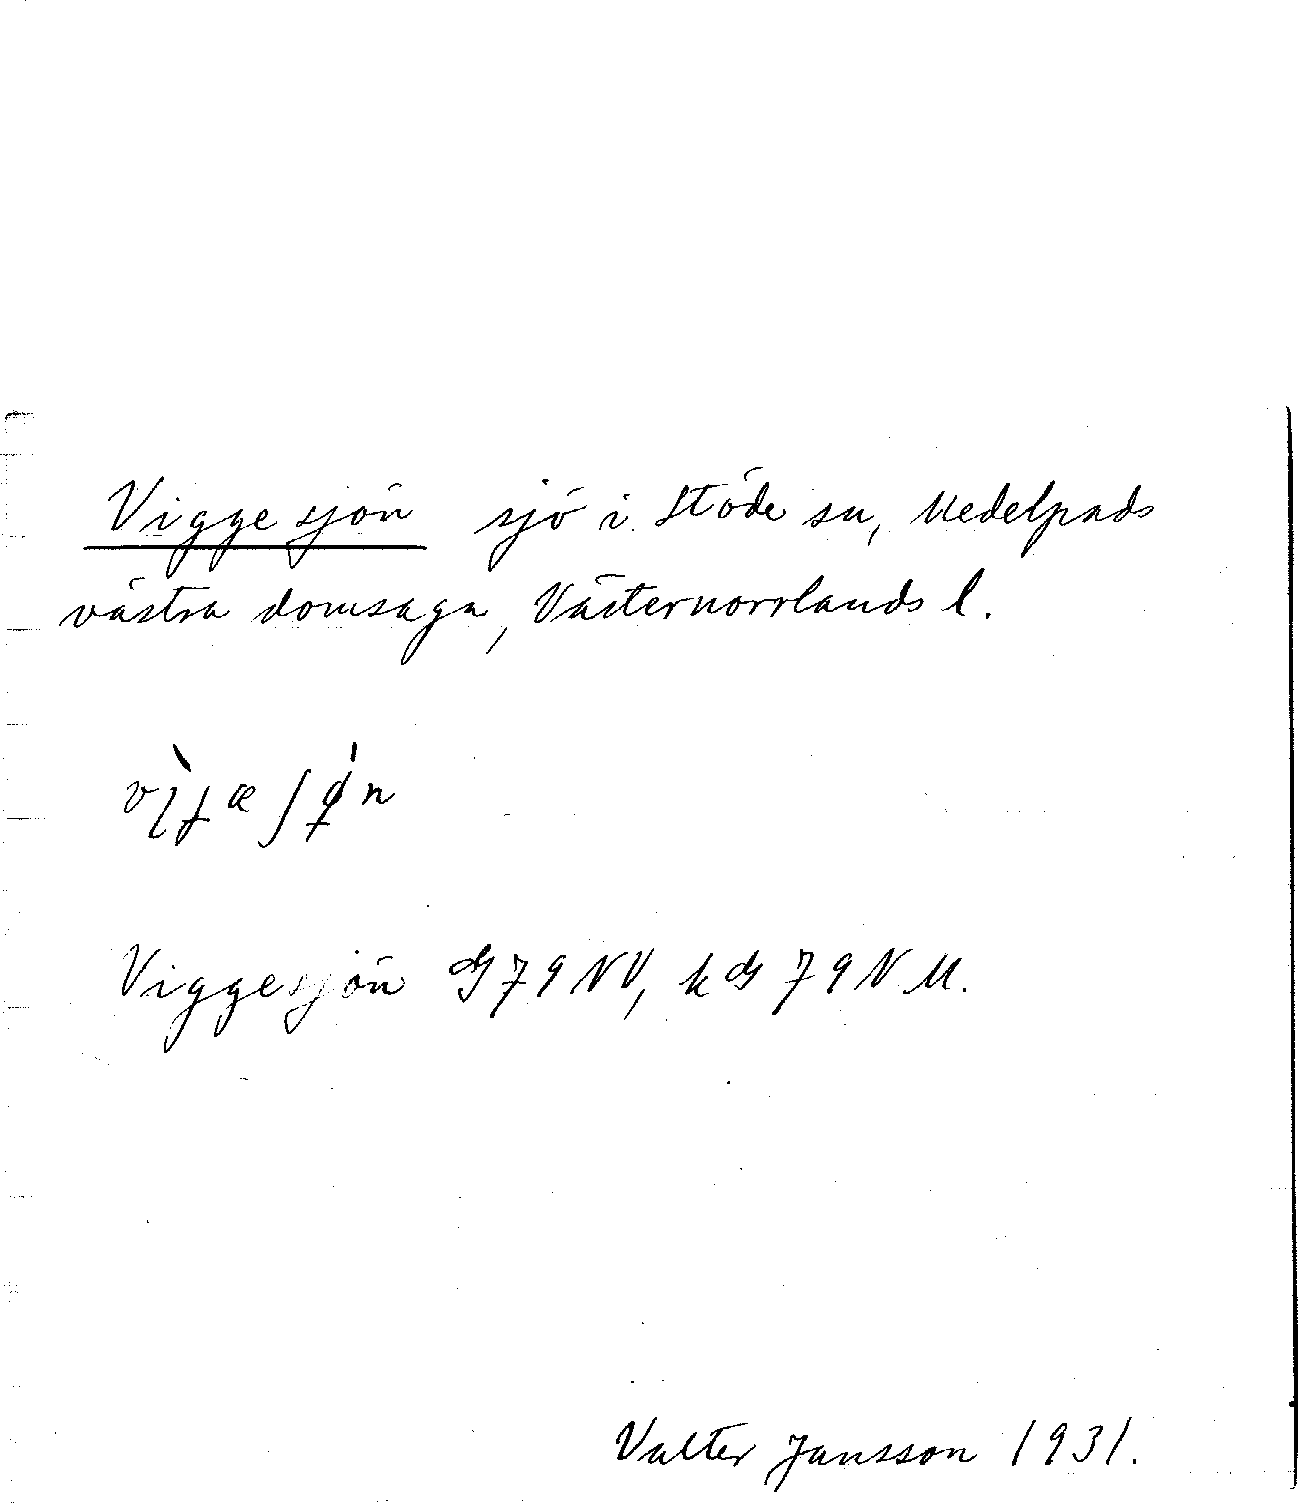 Viggesjön sjö i Stöde sn, Medelpads
västra domsaga, Västernorrlands l.
Viggesjön G 79 NV, k G 79 N M.
Valter Jansson 1931.